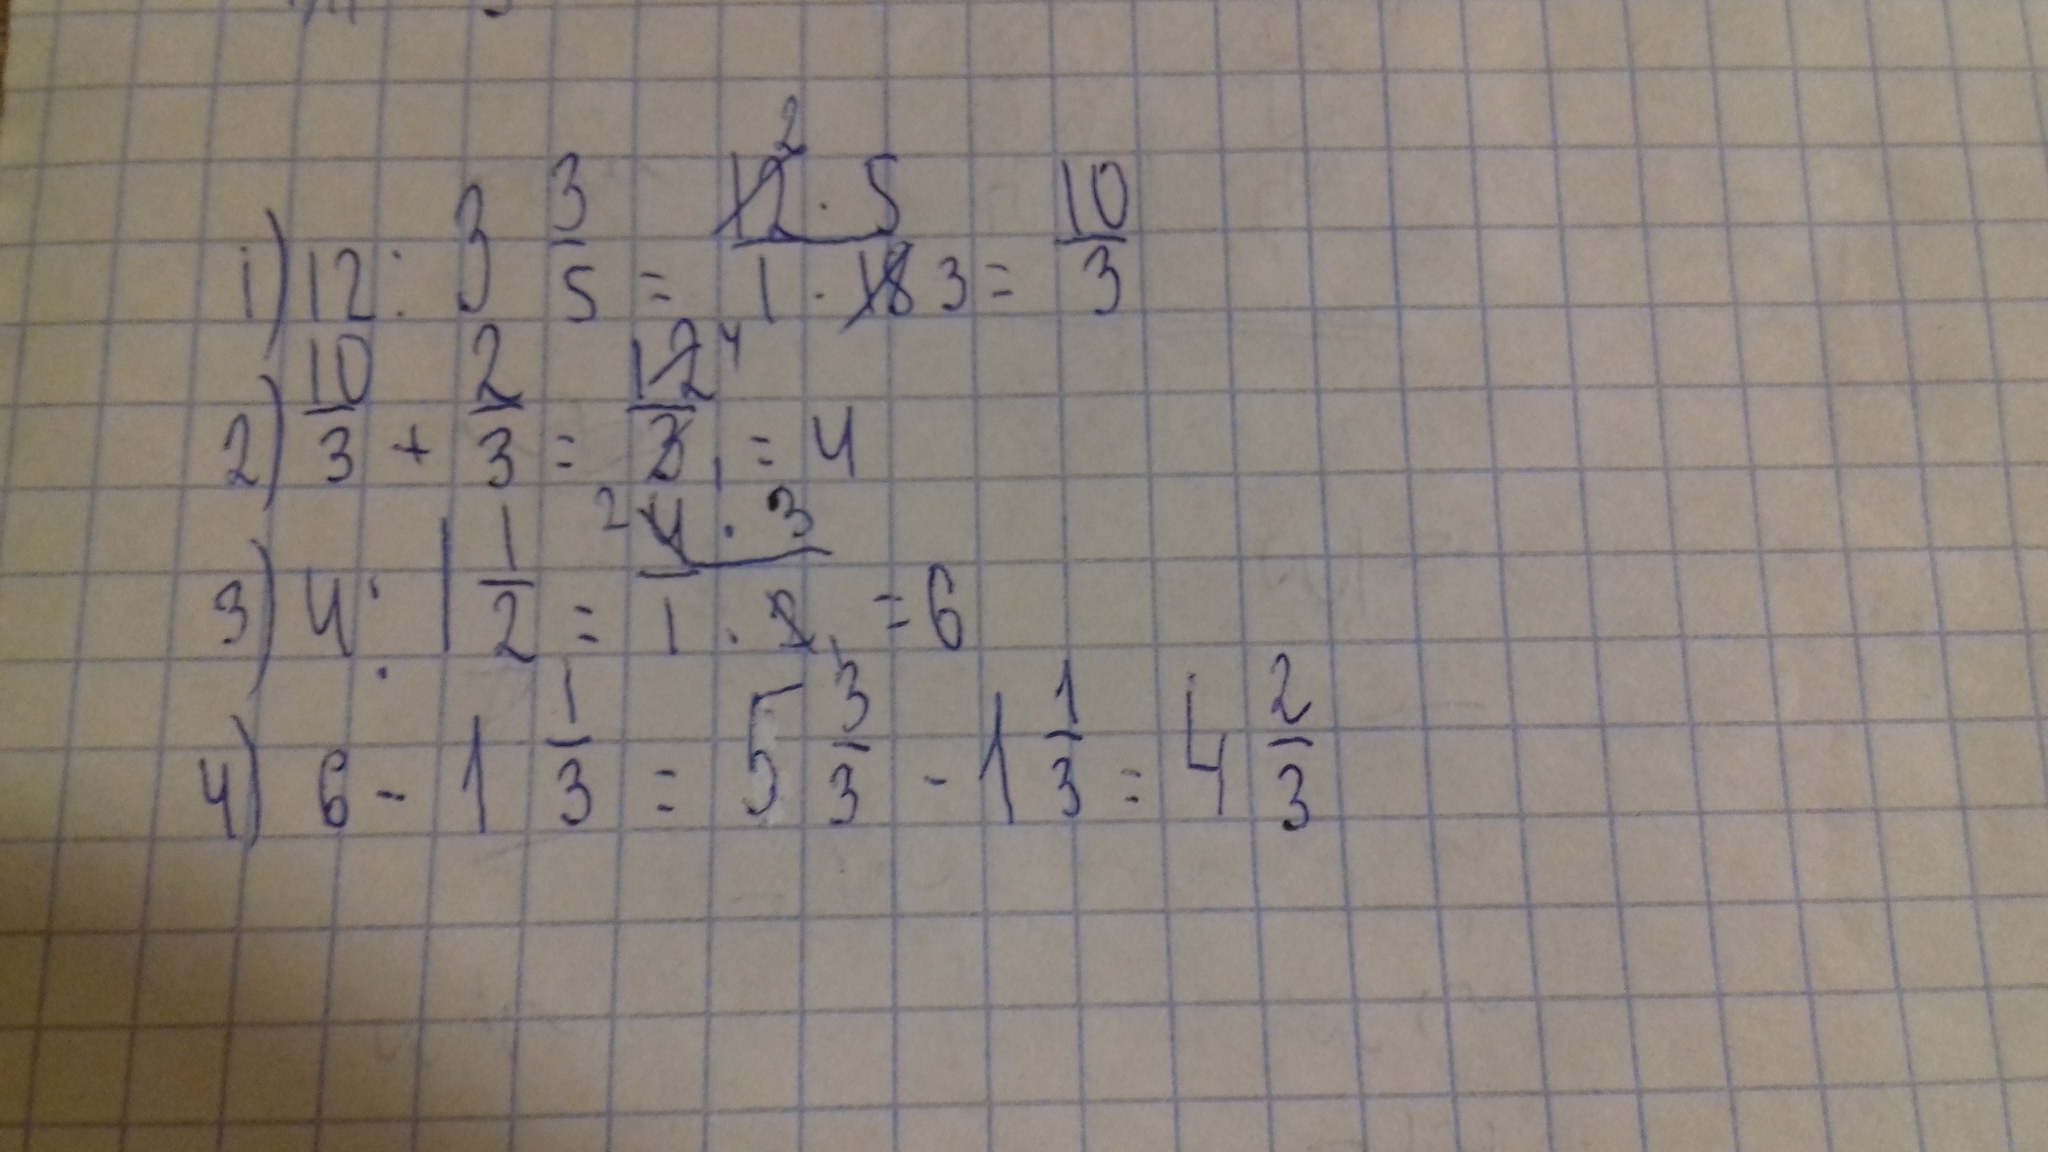 1) 12 : 3 3/5 = 12² · 5 / 1 · 18 3 = 10/3
2) 10/3 + 2/3 = 12⁴/3₁ = 4
3) 4 : 1 1/2 = ²4 · 3 / 1 · 2₁ = 6
4) 6 - 1 1/3 = 5 3/3 - 1 1/3 = 4 2/3